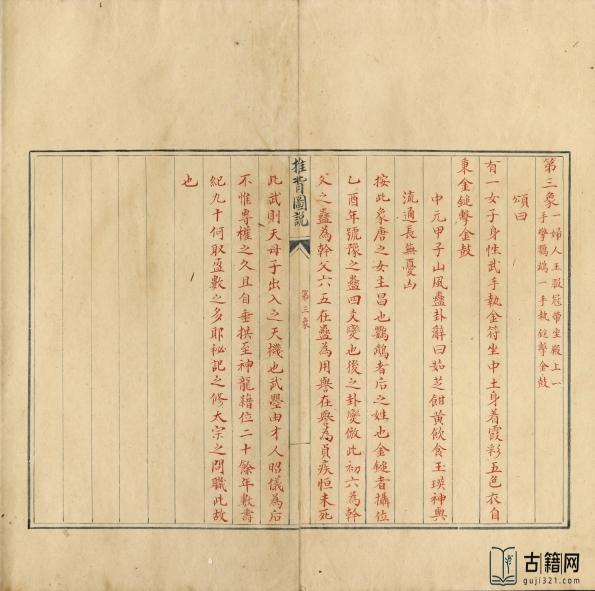 第三象一婦人王服冠帶坐殿上一
手擎鸚鵡一手執鎚擊金鼓
頌曰
有一女子身姓武手執金符坐中土身着霞彩五色衣自
秉金鎚擊金鼓
中元甲子山風蠱卦辭曰茹芝餌黃飲食玉瑛神與
流通長無憂凶
按此象唐之女主昌也鸚鵡者后之姓也金鎚者攝位
乙酉年號豫之蠱四爻變也後之卦變倣此初六為幹
父之蠱為幹父六五在蠱為用譽在譽為貞疾恒未死
推背圖說
第三象
此武則天母子出入之天機也武曌由才人昭儀為后
不惟專權之久且自垂拱至神龍籍位二十餘年軟壽
紀九十何取盈數之多耶祕記之修太宗之問職此故
也
古籍网
guji321.com